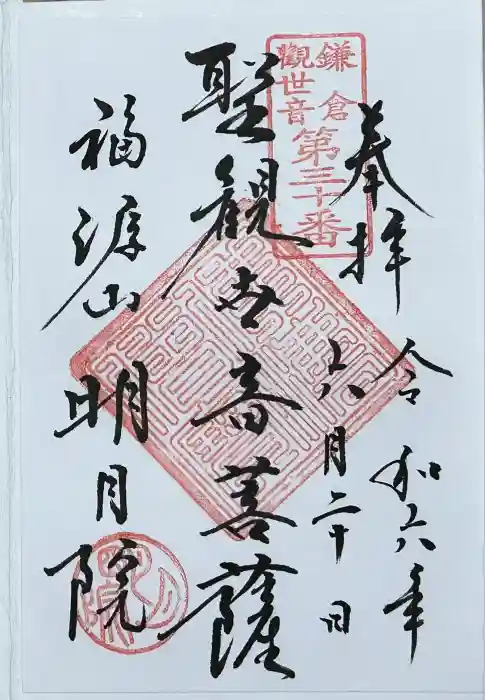 奉拝
令和六年
六月二十日
鎌倉
觀世音
第三十番
聖観世音菩薩
福源山
明月院